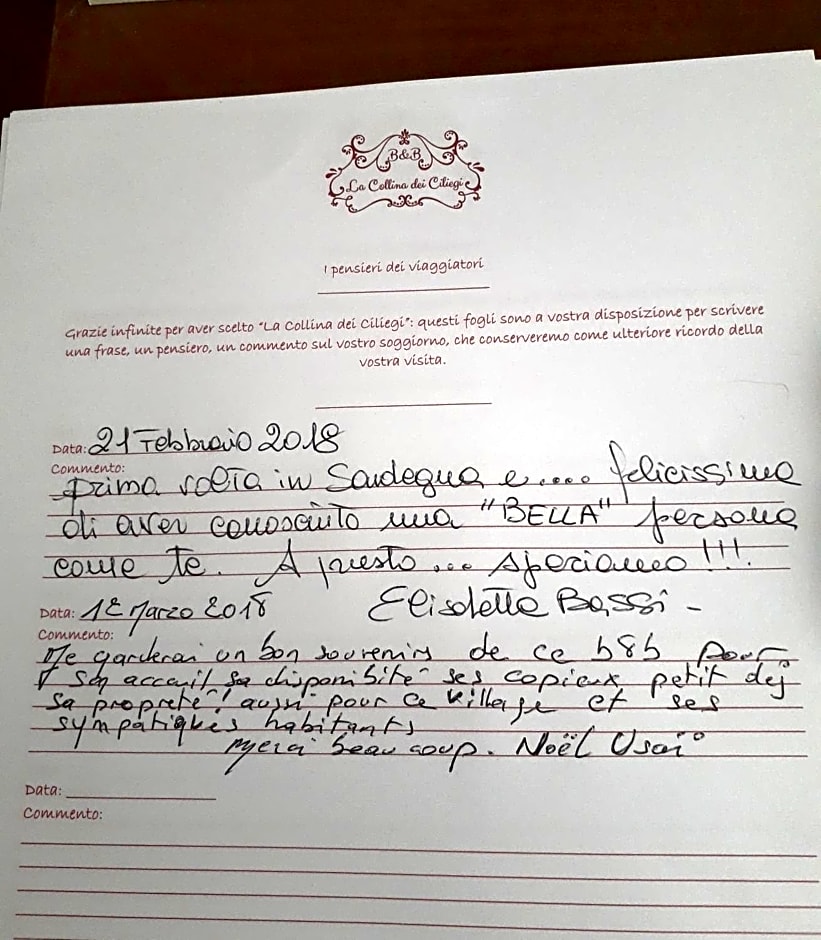 B&B
La Collina dei Ciliegi
I pensieri dei viaggiatori
Grazie infinite per aver scelto "La Collina dei Ciliegi": questi fogli sono a vostra disposizione per scrivere
una frase, un pensiero, un commento sul vostro soggiorno, che conserveremo come ulteriore ricordo della
vostra visita.
Data: 21 Febbraio 2018
Commento:
Prima volta in Sardegna e.... felicissima
di aver conosciuto una "BELLA" persona
come te. A presto... speriamo!!!
Elisabetta Bassi -
Data: 12 Marzo 2018
Commento:
Je garderai un bon souvenirs de ce b&b pour
son accueil, sa disponibité ses copieux petit dej
sa propreté! aussi pour ce village et ses
sympatiques habitants
Merci beaucoup. Noël Usai
Data:
Commento: